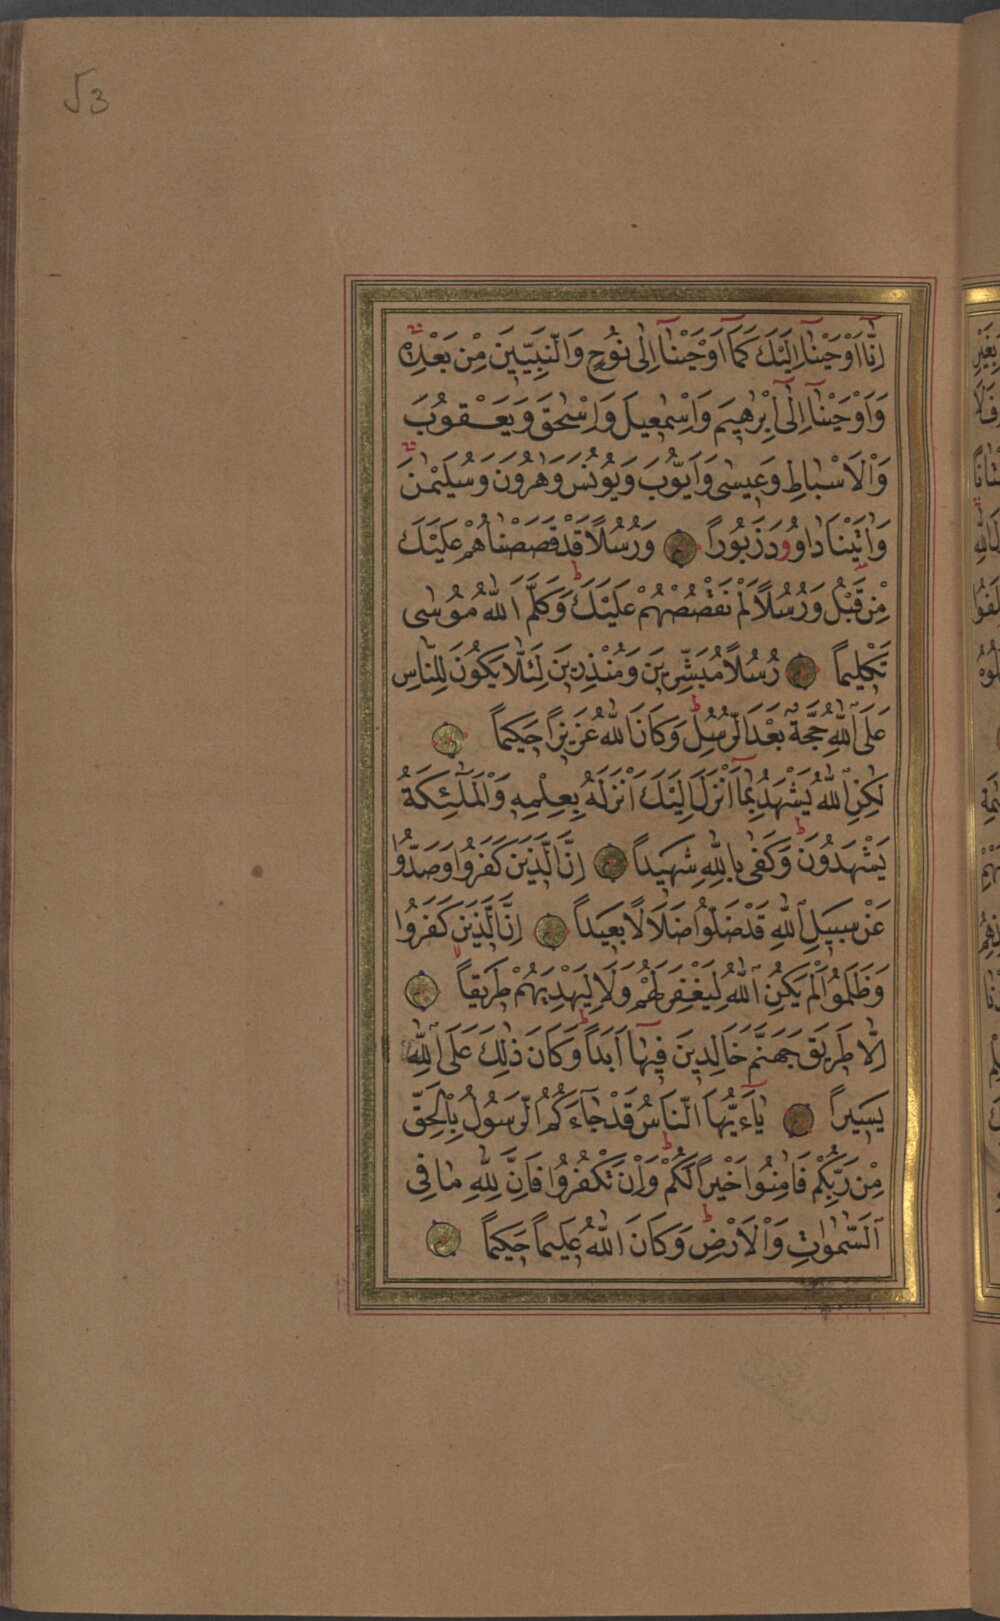 53
اِنَّٓا اَوْحَيْنَٓا اِلَيْكَ كَمَٓا اَوْحَيْنَٓا اِلٰى نُوحٍ وَالنَّبِيّٖنَ مِنْ بَعْدِهٖ
وَاَوْحَيْنَٓا اِلٰٓى اِبْرٰهٖيمَ وَاِسْمٰعٖيلَ وَاِسْحٰقَ وَيَعْقُوبَ
وَالْاَسْبَاطِ وَعٖيسٰى وَاَيُّوبَ وَيُونُسَ وَهٰرُونَ وَسُلَيْمٰنَ
وَاٰتَيْنَا دَاوُودَ زَبُوراً وَرُسُلاً قَدْ قَصَصْنَاهُمْ عَلَيْكَ
مِنْ قَبْلُ وَرُسُلاً لَمْ نَقْصُصْهُمْ عَلَيْكَ وَكَلَّمَ اللّٰهُ مُوسٰى
تَكْلٖيماً رُسُلاً مُبَشِّرٖينَ وَمُنْذِرٖينَ لِئَلَّا يَكُونَ لِلنَّاسِ
عَلَى اللّٰهِ حُجَّةٌ بَعْدَ الرُّسُلِ وَكَانَ اللّٰهُ عَزٖيزاً حَكٖيماً
لٰكِنِ اللّٰهُ يَشْهَدُ بِمَٓا اَنْزَلَ اِلَيْكَ اَنْزَلَهُ بِعِلْمِهٖ وَالْمَلٰٓئِكَةُ
يَشْهَدُونَ وَكَفٰى بِاللّٰهِ شَهٖيداً اِنَّ الَّذٖينَ كَفَرُوا وَصَدُّوا
عَنْ سَبٖيلِ اللّٰهِ قَدْ ضَلُّوا ضَلَالاً بَعٖيداً اِنَّ الَّذٖينَ كَفَرُوا
وَظَلَمُوا لَمْ يَكُنِ اللّٰهُ لِيَغْفِرَ لَهُمْ وَلَا لِيَهْدِيَهُمْ طَرٖيقاً
اِلَّا طَرٖيقَ جَهَنَّمَ خَالِدٖينَ فٖيهَٓا اَبَداً وَكَانَ ذٰلِكَ عَلَى اللّٰهِ
يَسٖيراً يَٓاءَيُّهَا النَّاسُ قَدْ جَٓاءَكُمُ الرَّسُولُ بِالْحَقِّ
مِنْ رَبِّكُمْ فَاٰمِنُوا خَيْراً لَكُمْ وَاِنْ تَكْفُرُوا فَاِنَّ لِلّٰهِ مَا فِى
السَّمٰوَاتِ وَالْاَرْضِ وَكَانَ اللّٰهُ عَلٖيماً حَكٖيماً